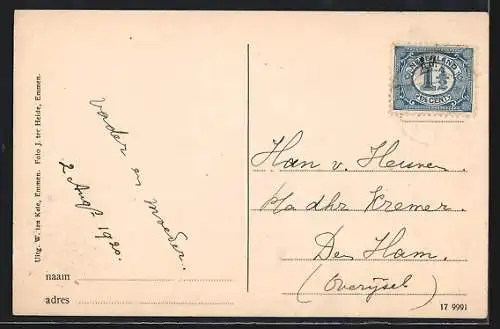 Uitg. W. ten Kate, Emmen. Foto J. ter Heide, Emmen.
vader en moeder.
2 Augs 1920.
naam
adres
NEDERLAND
1½
1½ CENT
Han v. Heuven
p/a dhr Kremer
Den Ham.
(Overijsel)
17 9991